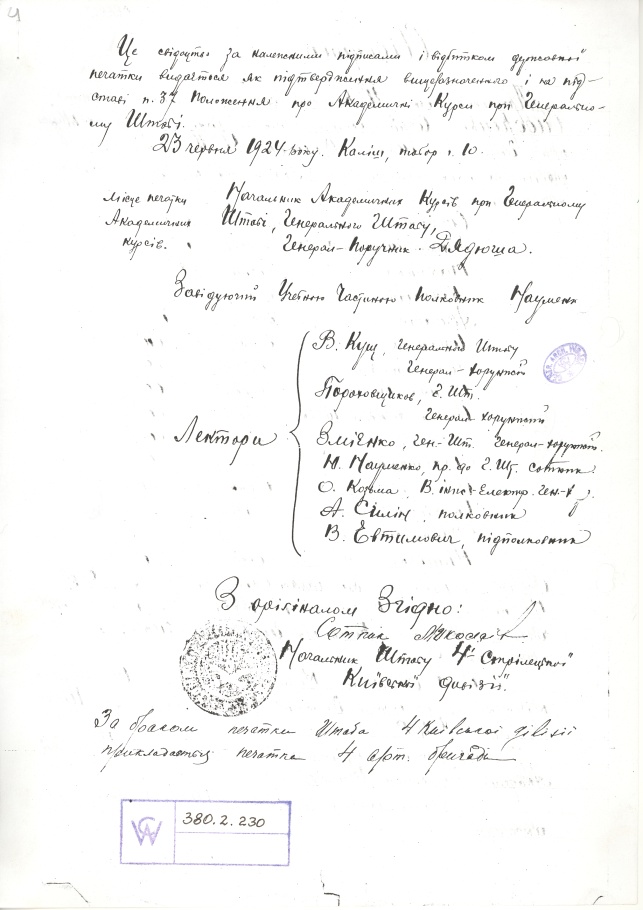 Це свідоцтво за належними підписами і відбитком державної
печатки видається як підтвердження вищезазначеного і на під-
ставі п. 37 Положення про Академичні Курси при Генерально-
му Штабі.
23 червня 1924 року. Каліш, табор ч. 10.
Місце печатки
Академичних
Курсів.
Начальник Академичних Курсів при Генеральному
Штабі, Генерального Штабу,
Генерал-Поручник Дядюша.
Завідуючий Учебною Частиною Полковник Науменк
Лектори
В. Кущ, Генерального Штабу
Генерал-хорунжий
Пороховщиков, Г. Шт.
Генерал хорунжий
Змієнко, Ген-Шт. Генерал-хорунжий.
Ю. Науменко, пр. до Г. Шт. сотник
О. Козьма, В. інж-Електр. Ген-
А. Силін, полковник
В. Евтимович, підполковник
З оригіналом Згідно:
Сотник
Начальник Штабу 4 Стрілецької
Київської дивізії.
За браком печатки Штаба 4 Київської дівізії
прикладається печатка 4 арт. бригади
380.2.230